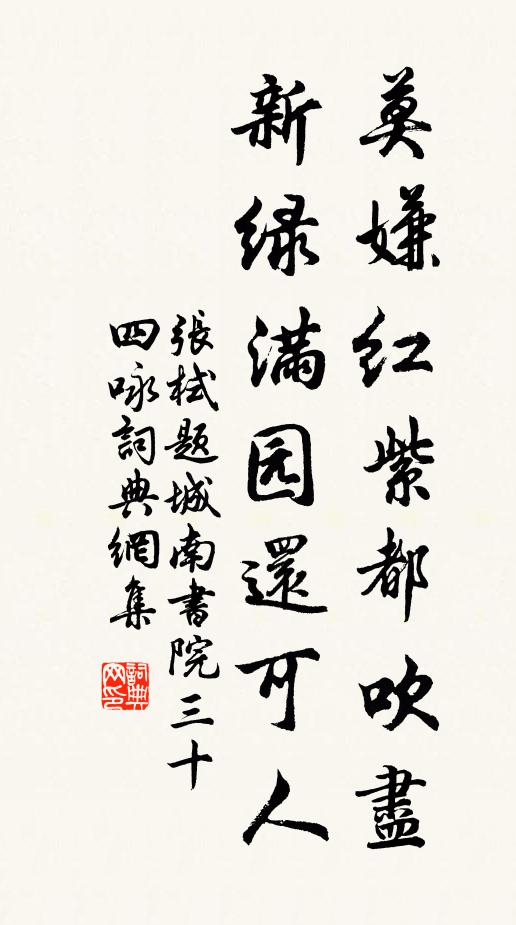 莫嫌红紫都吹盡
新绿满园還可人
張栻题城南書院三十
四咏詞典網集
詞典
网印